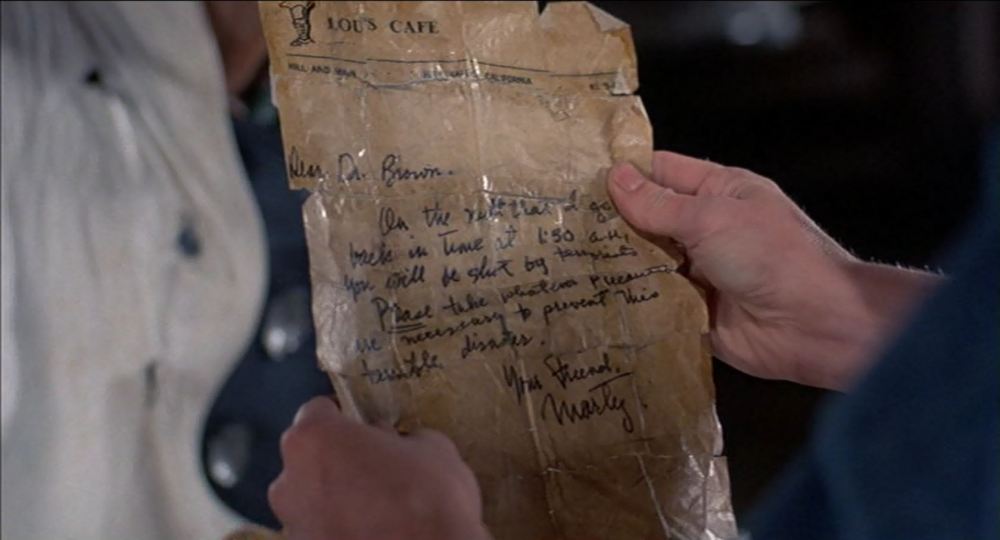 LOU'S CAFE
HILL AND MAIN CALIFORNIA
Dear Dr. Brown.
On the night that I go
back in time at 1:30 a.m.
you will be shot by terrorists
Please take whatever precautions
are necessary to prevent this
terrible disaster.
Your Friend.
Marty